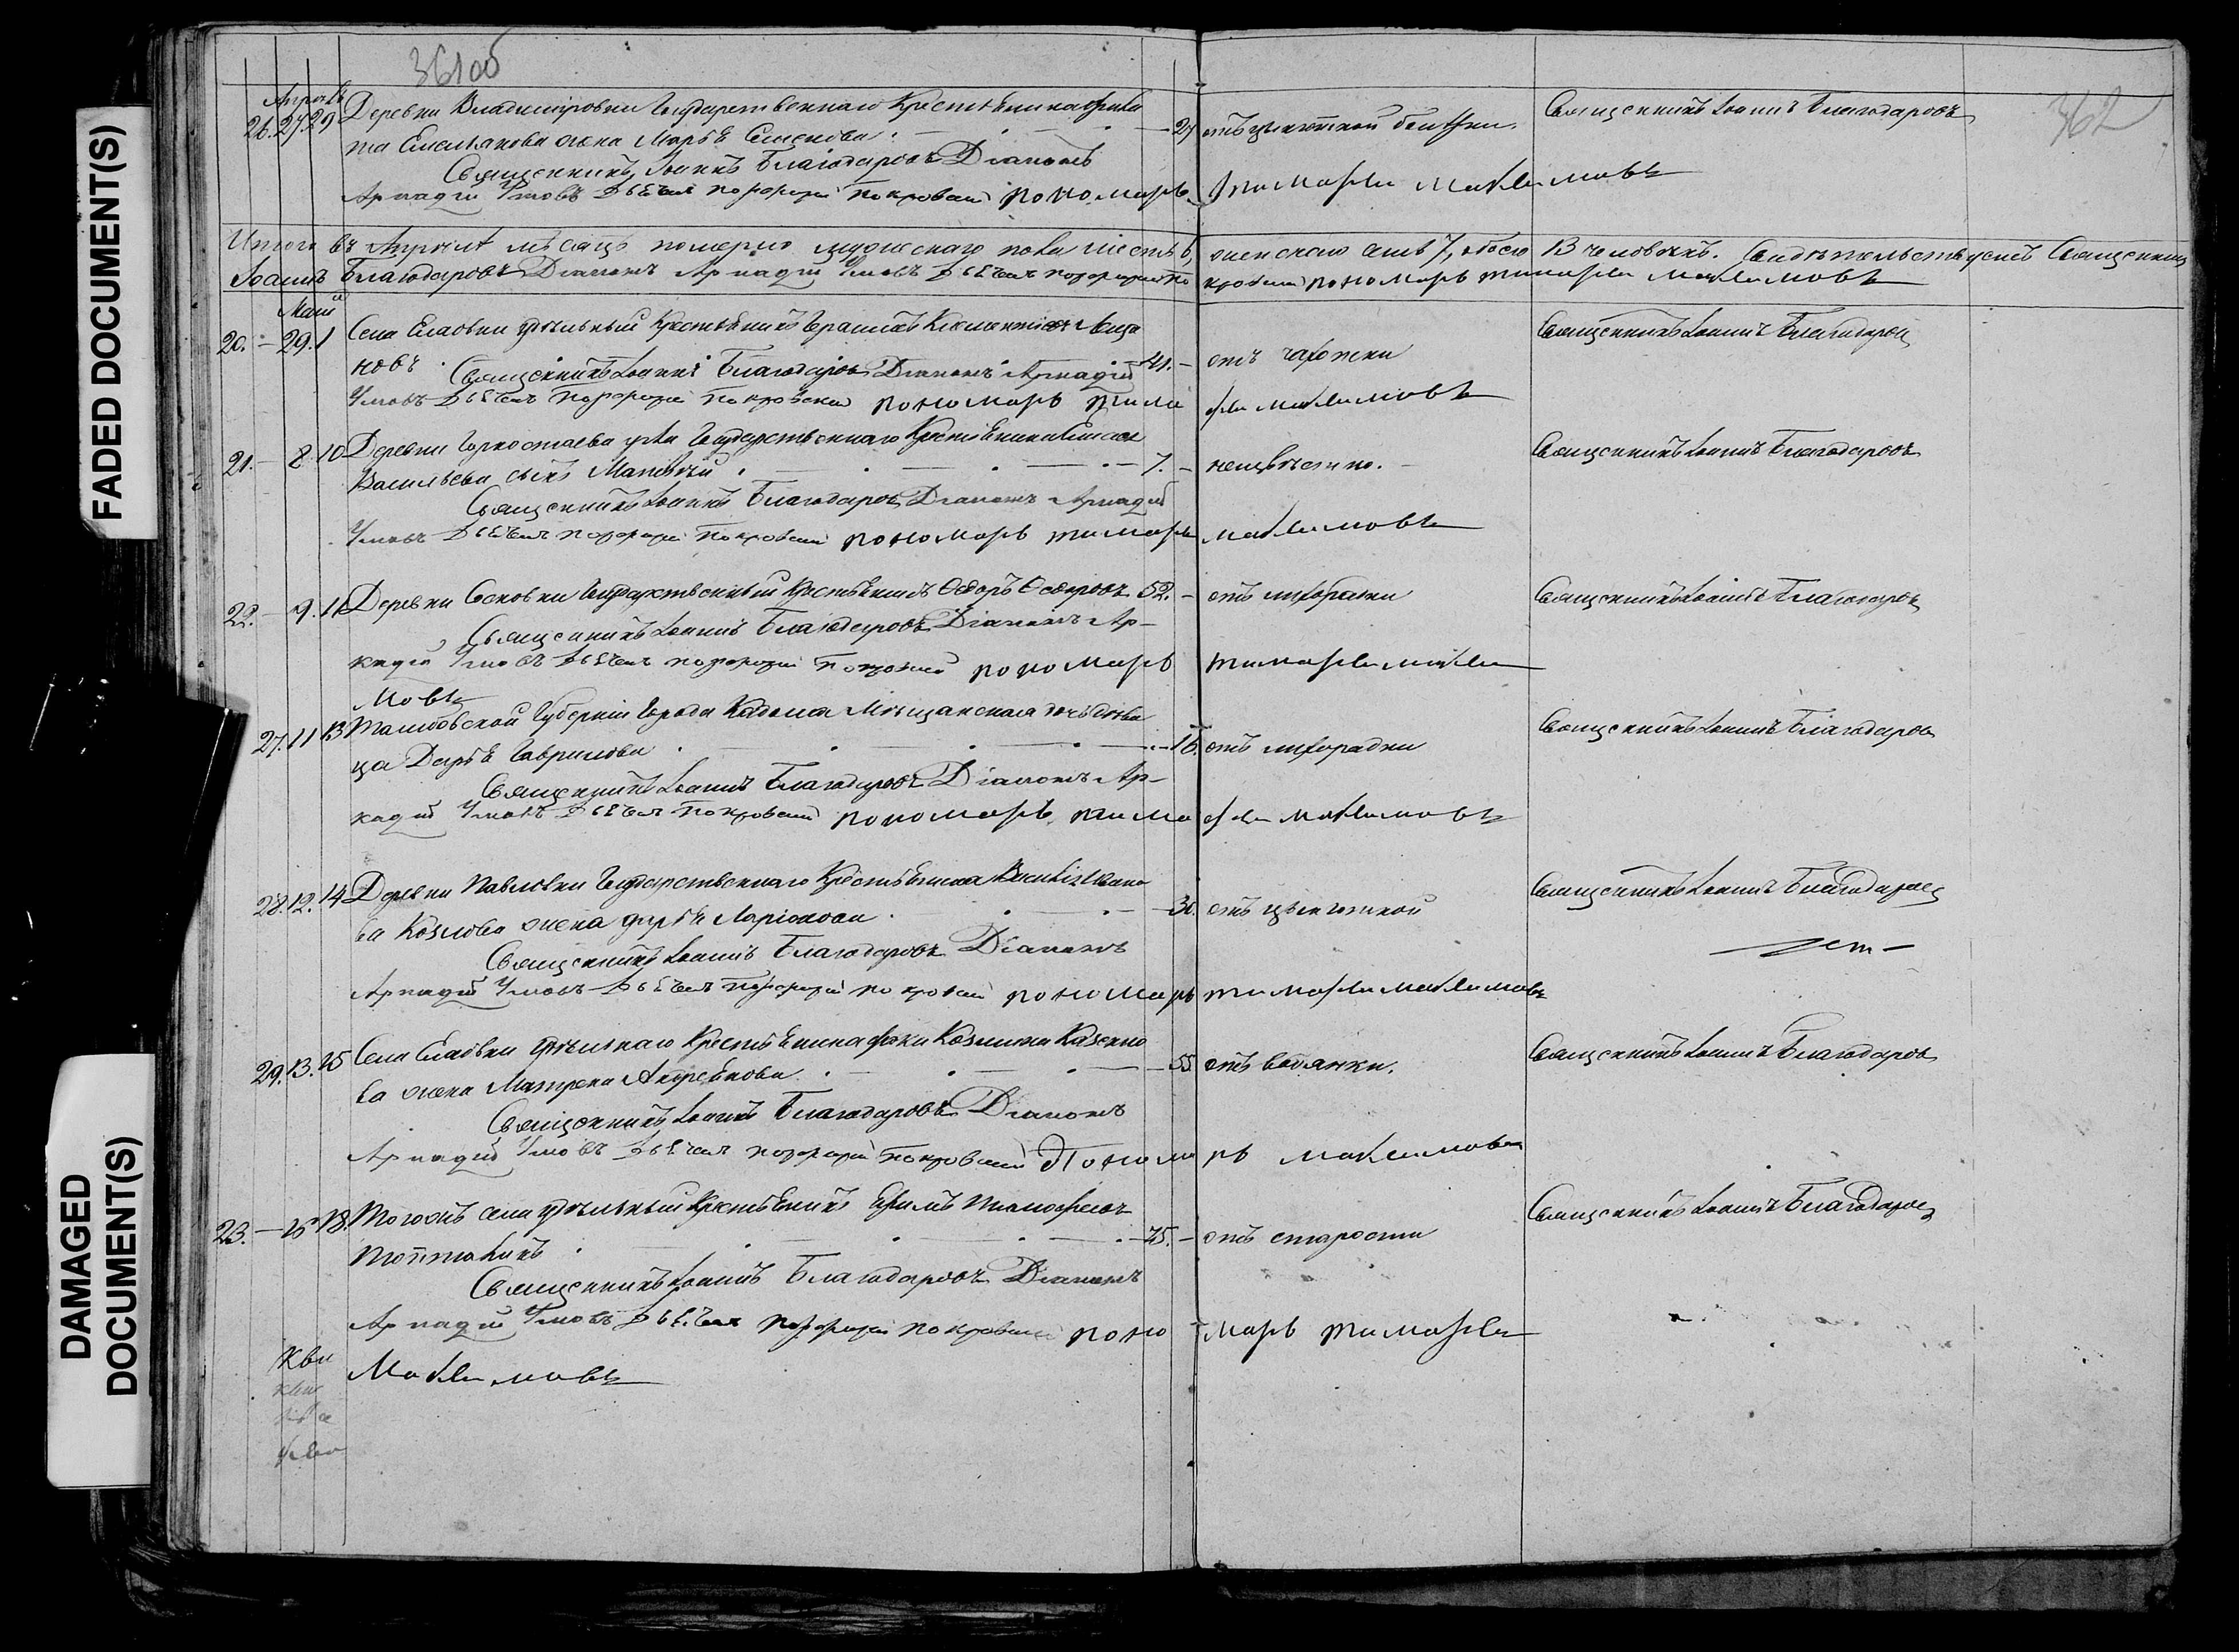 FADED DOCUMENT(S)
DAMAGED
DOCUMENT(S)
361 об
362
Апрель
26. 27. 29 Деревни Владимировки Государственнаго Крестьянина
та Емельянова жена Марья Семенова 27 отъ цынготной болезни. Священникъ Іоаннъ Благодаровъ
Священникъ Іоаннъ Благодаровъ Діаконъ
Аркадій Умовъ Дьячекъ Порфирій Покровскій пономарь Тимофей Максимовъ
Итого въ Апреле месяце померло мужескаго пола шесть 6, женскаго семь 7, обоего 13 человекъ. Свидетельствуетъ Священникъ
Іоаннъ Благодаровъ Діаконъ Аркадій Умовъ Дьячекъ Порфирій По кровскій пономарь Тимофей Максимовъ
Маій
20. – 29. 1 Села Елаовки удельный Крестьянинъ Герасимъ Климентіевъ
новъ 41. – отъ чахотки Священникъ Іоаннъ Благодаровъ
Священникъ Іоаннъ Благодаровъ Діаконъ Аркадій
Умовъ Дьячекъ Порфирій Покровскій пономарь Тимо фей Максимовъ
21. – 8. 10 Деревни Горностаева Государственнаго Крестьянина
Васильева сынъ Матвей 7. – неизвестно. Священникъ Іоаннъ Благодаровъ
Священникъ Іоаннъ Благодаровъ Діаконъ Аркадій
Умовъ Дьячекъ Порфирій Покровскій пономарь Тимофей Максимовъ
22. – 9. 11 Деревни Сосновки Государственный Крестьянинъ Ѳедоръ Ѳедоровъ 52. – отъ лихорадки Священникъ Іоаннъ Благодаровъ
Священникъ Іоаннъ Благодаровъ Діаконъ Ар-
кадій Умовъ Дьячекъ Порфирій Покровскій пономарь Тимофей Макси
мовъ
27. 11. 13 Тамбовской Губерніи города Кадома Мещанская дочь деви
ца Дарья Гаврилова 16. отъ лихорадки Священникъ Іоаннъ Благодаровъ
Священникъ Іоаннъ Благодаровъ Діаконъ Ар-
кадій Умовъ Дьячекъ Покровскій пономарь Тимо фей Максимовъ
28. 12. 14 Деревни Павловки Государственнаго Крестьянина Василія Ивано
ва Козлова жена Дарья Ларіонова 30. отъ цынготной Священникъ Іоаннъ Благодаровъ
Священникъ Іоаннъ Благодаровъ Діаконъ
Аркадій Умовъ Дьячекъ Порфирій Покровскій пономарь Тимофей Максимовъ
29. 13. 15 Села Елаовки удельнаго Крестьянина Фоки Козмина
ва жена Матрена Андреянова 55 отъ водянки. Священникъ Іоаннъ Благодаровъ
Священникъ Іоаннъ Благодаровъ Діаконъ
Аркадій Умовъ Дьячекъ Порфирій Покровскій Пономарь Максимовъ
23. – 16 18. Тогожъ села удельный Крестьянинъ Ефимъ Тимофеевъ
75. – отъ старости Священникъ Іоаннъ Благодаровъ
Священникъ Іоаннъ Благодаровъ Діаконъ
Аркадій Умовъ Дьячекъ Порфирій Покровскій поно марь Тимофей
Максимовъ